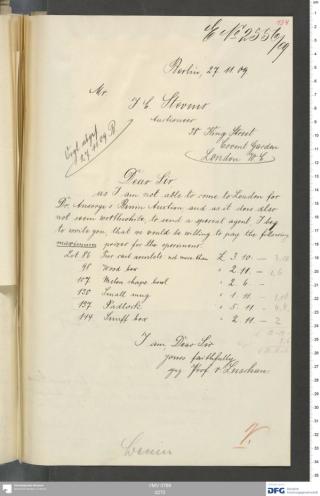 134
E № 2556/09
Berlin, 27.11.09.
Mr.
J C Stevens
Auctioneer
38 King Street
Covent Garden
London W C
27.11.09. B
Dear Sir
as I am not able to come to London for
Dr. Ansorge's Benin Auction and as it does also
not seem worthwhile, to send a special agent I beg
to write you, that we would be willing to pay the following
maximum prices for the specimens:
Lot 86 Two cast armlets not more than £ 3. 10. —
98 Wood box " 2. 11. —
107 Melon shape bowl " 2. 6 -
130 Small mug " 1. 11
137 Padlock " 5. 11 -
144 Snuff box " 2. 11 -
I am Dear Sir
yours faithfully
gez. Prof. v. Luschan.
Benin
DFG